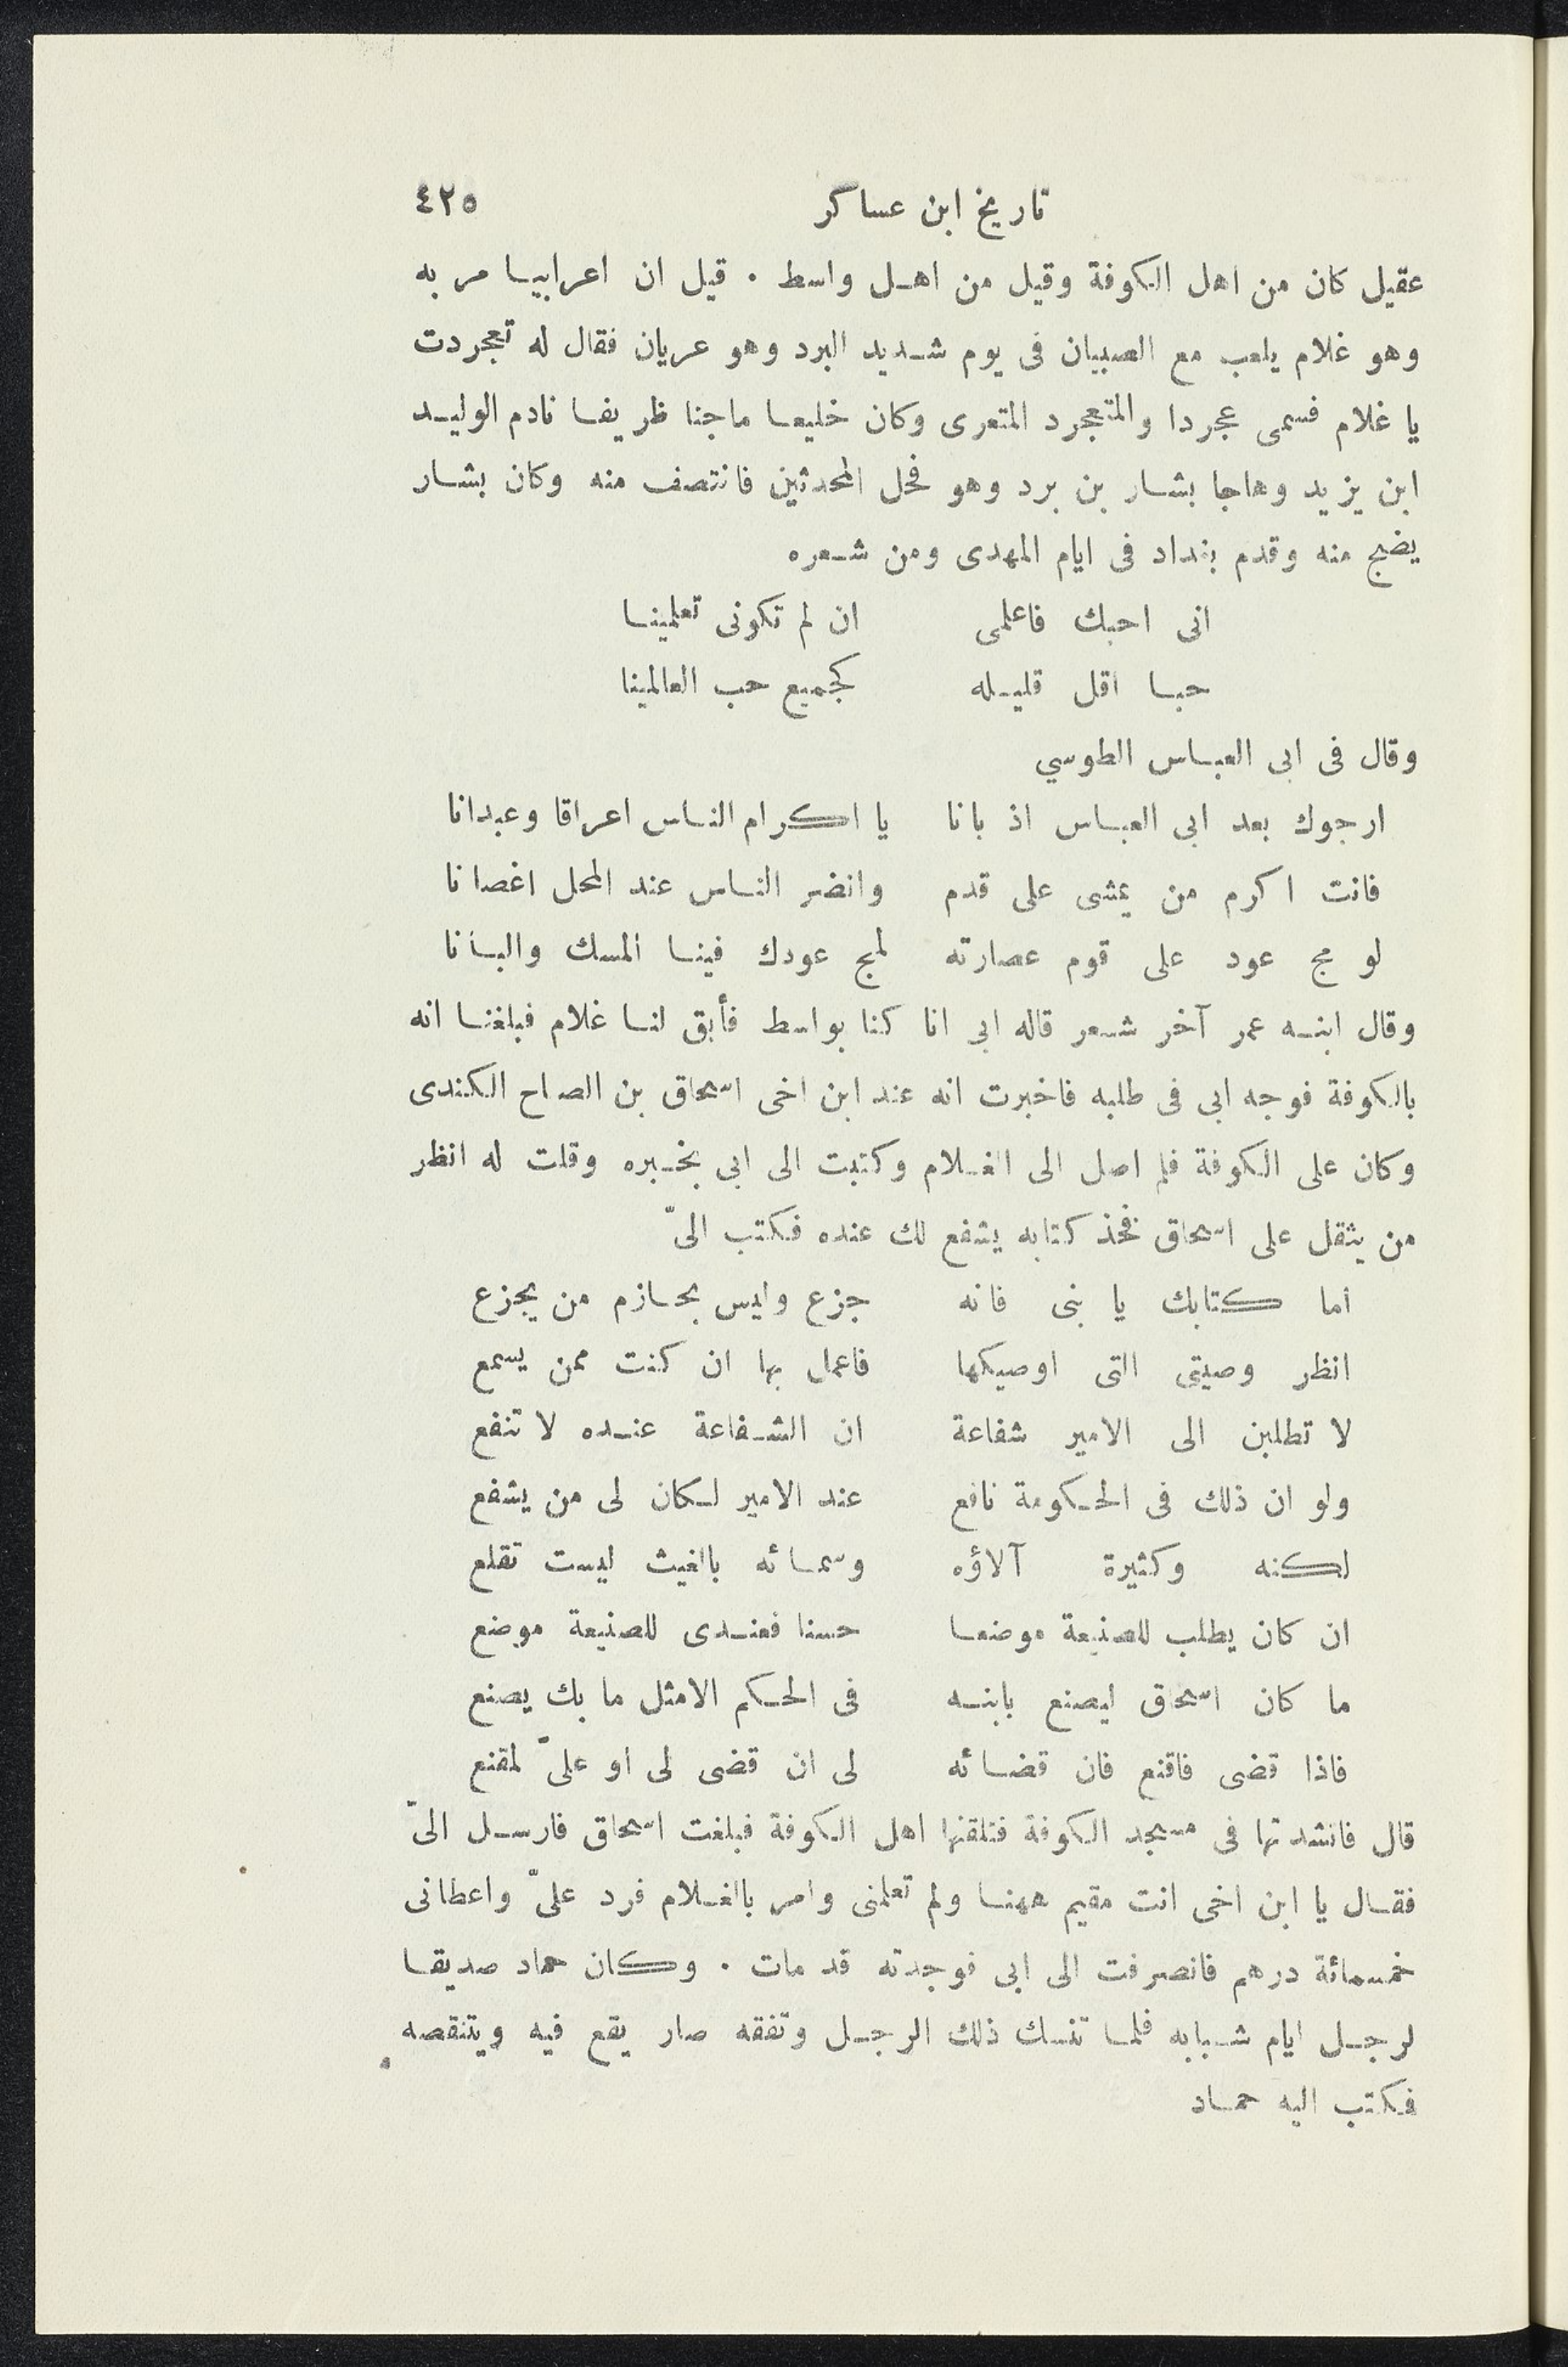 تاريخ ابن عساكر ٤٢٥
عقيل كان من اهل الكوفة وقيل من اهل واسط . قيل ان اعرابيا مر به
وهو غلام يلعب مع الصبيان فى يوم شديد البرد وهو عريان فقال له تعجردت
يا غلام فسمى عجردا والمتعجرد المتعرى وكان خليعا ماجنا ظريفا نادم الوليد
ابن يزيد وهاجا بشار بن برد وهو فحل المحدثين فانتصف منه وكان بشار
يضج منه وقدم بغداد فى ايام المهدى ومن شعره
انى احبك فاعلمى ان لم تكونى تعلمينا
حبا اقل قليله كجميع حب العالمينا
وقال فى ابى العباس الطوسي
ارجوك بعد ابى العباس اذ بانا يا اكرام الناس اعراقا وعبدانا
فانت اكرم من يمشى على قدم وانضر الناس عند المحل اغصانا
لو مج عود على قوم عصارته لمج عودك فينا المسك والبانا
وقال ابنه عمر آخر شعر قاله ابى انا كنا بواسط فأبق لنا غلام فبلغنا انه
بالكوفة فوجه ابى فى طلبه فاخبرت انه عند ابن اخى اسحاق بن الصاح الكندى
وكان على الكوفة فلم اصل الى الغلام وكتبت الى ابى بخبره وقلت له انظر
من يثقل على اسحاق فخذ كتابه يشفع لك عنده فكتب الىّ
اما كتابك يا بنى فانه جزع وليس بحازم من يجزع
انظر وصيتى التى اوصيكها فاعمل بها ان كنت ممن يسمع
لا تطلبن الى الامير شفاعة ان الشفاعة عنده لا تنفع
ولو ان ذلك فى الحكومة نافع عند الامير لكان لى من يشفع
لكنه وكثيرة آلاؤه وسمائه بالغيث ليست تقلع
ان كان يطلب للصنيعة موضعا حسنا فعندى للصنيعة موضع
ما كان اسحاق ليصنع بابنه فى الحكم الامثل ما بك يصنع
فاذا قضى فاقنع فان قضائه لى ان قضى لى او علىّ لمقنع
قال فانشدتها فى مسجد الكوفة فتلقنها اهل الكوفة فبلغت اسحاق فارسل الىّ
فقال يا ابن اخى انت مقيم ههنا ولم تعلمنى وامر بالغلام فرد علىّ واعطانى
خمسمائة درهم فانصرفت الى ابى فوجدته قد مات . وكان حماد صديقا
لرجل ايام شبابه فلما تنسك ذلك الرجل وتفقه صار يقع فيه ويتنقصه
فكتب اليه حماد